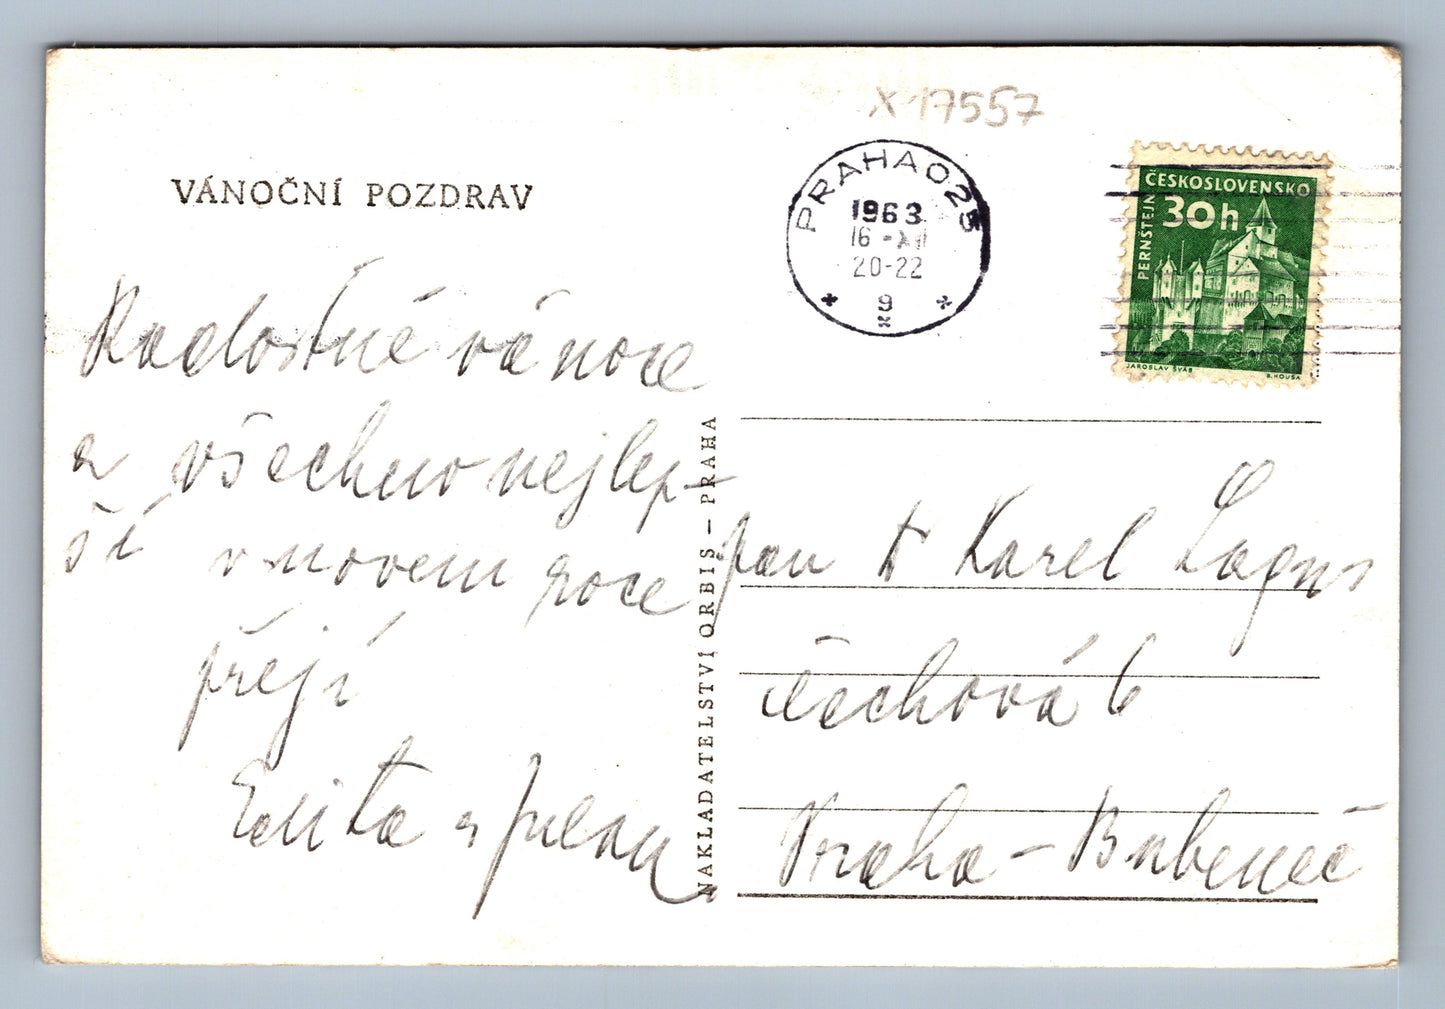 X 17557
VÁNOČNÍ POZDRAV
PRAHA 025
1963
16 -XII
20-22
9
ČESKOSLOVENSKO
30h
PERNŠTEJN
JAROSLAV ŠVÁB
B. HOUSA
Radostné vánoce
a všechno nejlep-
ší v novem roce
přejí
Edita a
NAKLADATELSTVÍ ORBIS – PRAHA
pan Karel Lagus
čechová 6
Praha – Bubeneč